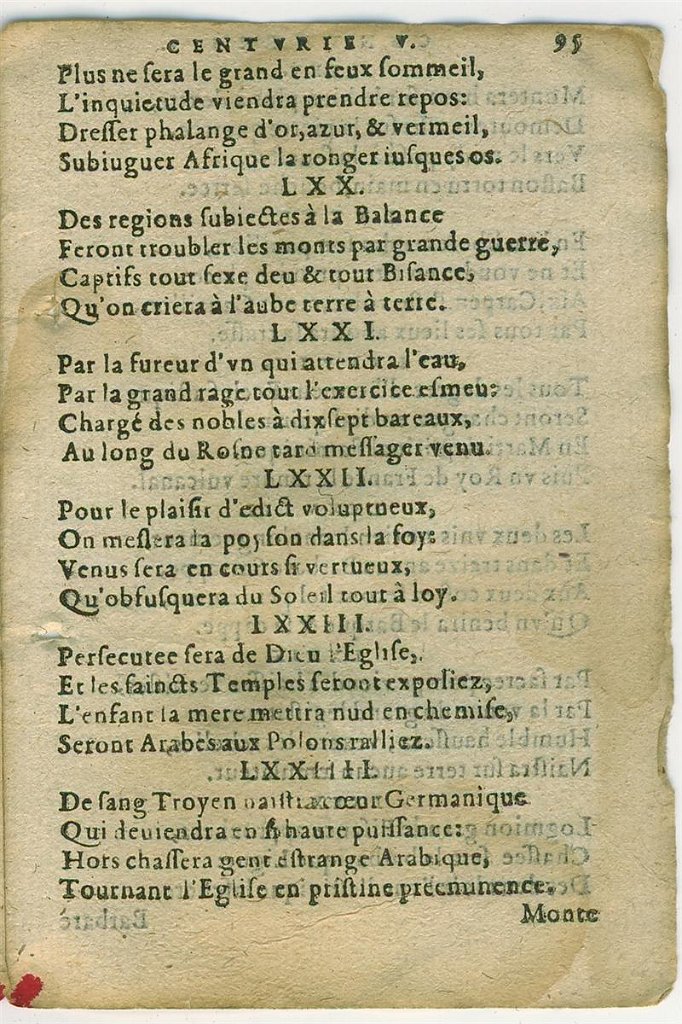 CENTVRIE V. 95
Plus ne ſera le grand en feux ſommeil,
L'inquietude viendra prendre repos:
Dreſſer phalange d'or, azur, & vermeil,
Subiuguer Afrique la ronger iuſques os.
LXX.
Des regions ſubiectes à la Balance
Feront troubler les monts par grande guerre,
Captifs tout ſexe deu & tout Biſance,
Qu'on criera à l'aube terre à terre.
LXXI.
Par la fureur d'vn qui attendra l'eau,
Par la grand rage tout l'exercite eſmeu:
Chargé des nobles à dixſept bareaux,
Au long du Roſne tard meſſager venu.
LXXII.
Pour le plaiſir d'edict voluptueux,
On meſlera la poyſon dans la foy:
Venus ſera en cours ſi vertueux,
Qu'obfuſquera du Soleil tout à loy.
LXXIII.
Perſecutee ſera de Dieu l'Egliſe,
Et les ſaincts Temples ſeront expoliez,
L'enfant la mere mettra nud en chemiſe,
Seront Arabes aux Polons ralliez.
LXXIIII.
De ſang Troyen naiſtra cœur Germanique
Qui deuiendra en ſi haute puiſſance:
Hors chaſſera gent eſtrange Arabique,
Tournant l'Egliſe en priſtine preeminence.
Monte